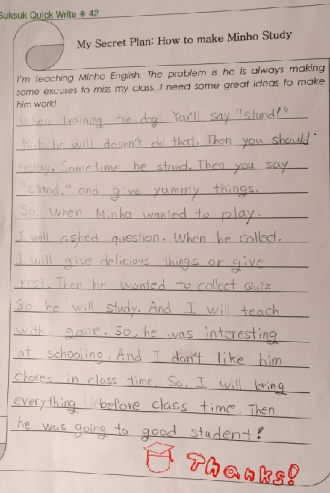 Suksuk Quick Write # 42
My Secret Plan: How to make Minho Study
I'm teaching Minho English. The problem is he is always making
some excuses to miss my class. I need some great ideas to make
him work!
When training the dog You'll say "stand!"
But he will dosen't do that. Then you should
Sometime he stand. Then you say
"stand," and give yummy things.
So, When Minho wanted to play.
I will asked question. When he collect.
I will give delicious things or give
rest. Then he wanted to collect Quiz
So he will study. And I will teach
with game. So, he was interesting
at schooling. And I don't like him
chores in class time. So, I will bring
everything before class time. Then
he was going to good student!
Thanks!